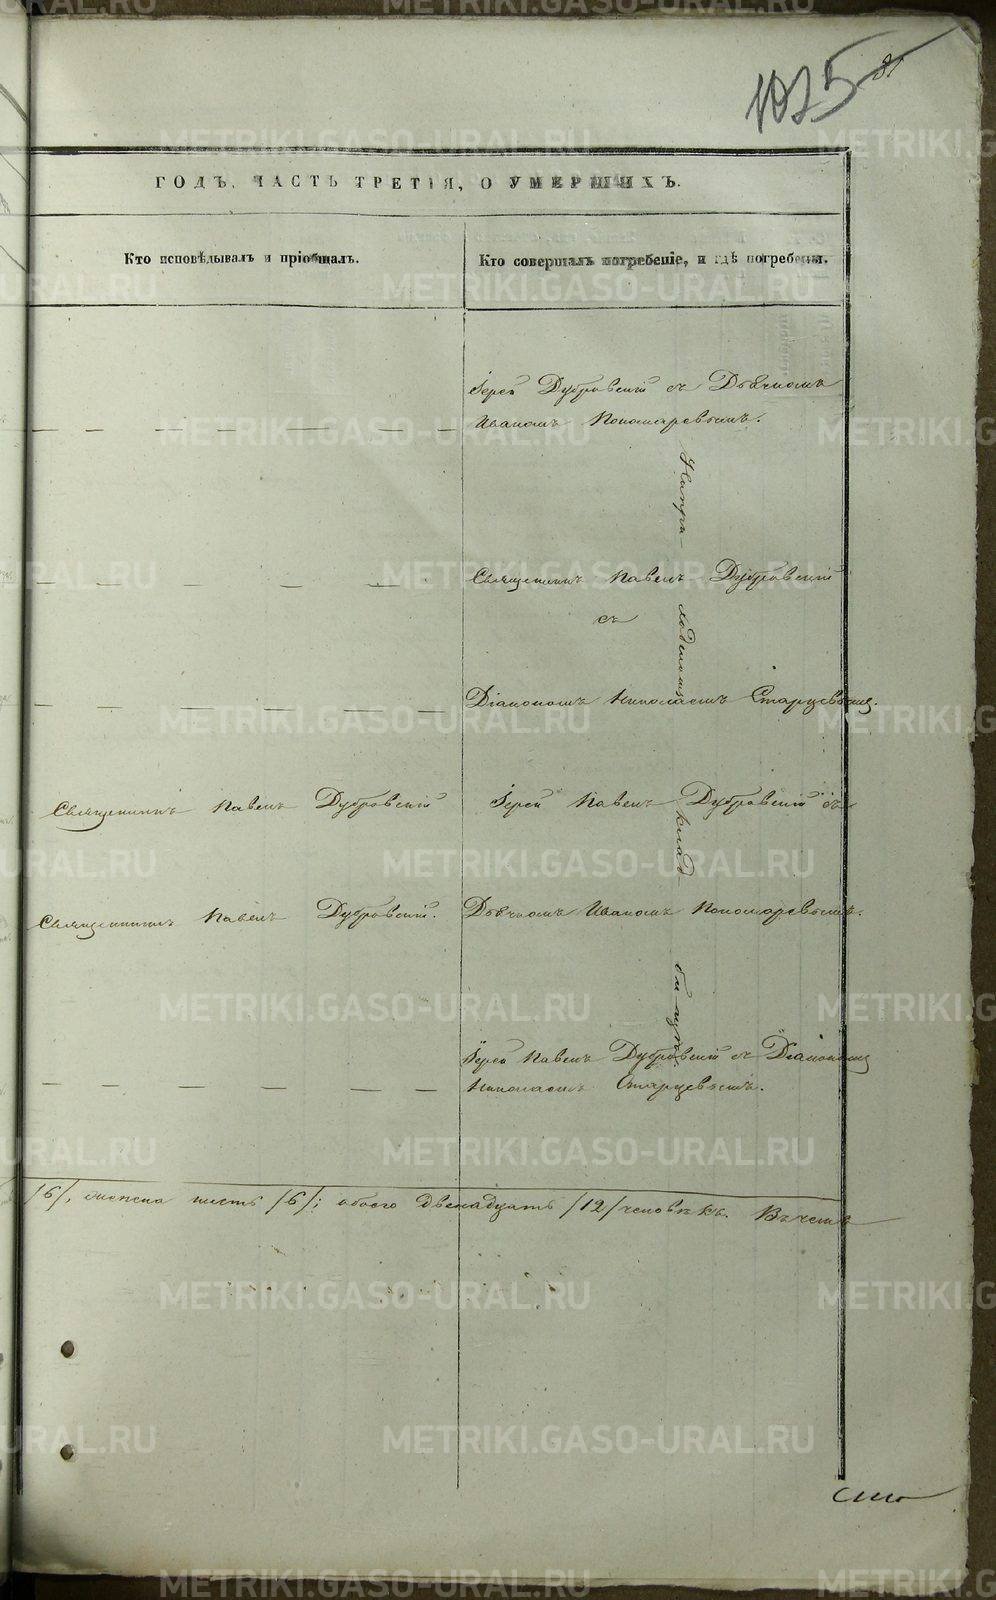 1025
81
ГОДЪ, ЧАСТЬ ТРЕТІЯ, О УМЕРШИХЪ.
Кто исповѣдывалъ и пріобщалъ.
Кто совершалъ погребеніе, и гдѣ погребены.
Іерей Дубровскій съ Дьячкомъ
Иваномъ Пономаревымъ.
Священникъ Павелъ Дубровскій
съ
Діакономъ Николаемъ Старцевымъ.
Священникъ Павелъ Дубровскій
Іерей Павелъ Дубровскій съ
Священникъ Павелъ Дубровскій.
Дьячкомъ Иваномъ Пономаревымъ.
Іерей Павелъ Дубровскій съ Діакономъ
Николаемъ Старцевымъ.
На при-
ходскомъ
клад-
бищѣ.
/6/, женска шесть /6/; обоего двенадцать /12/ человѣкъ. Въ чемъ
METRIKI.GASO-URAL.RU